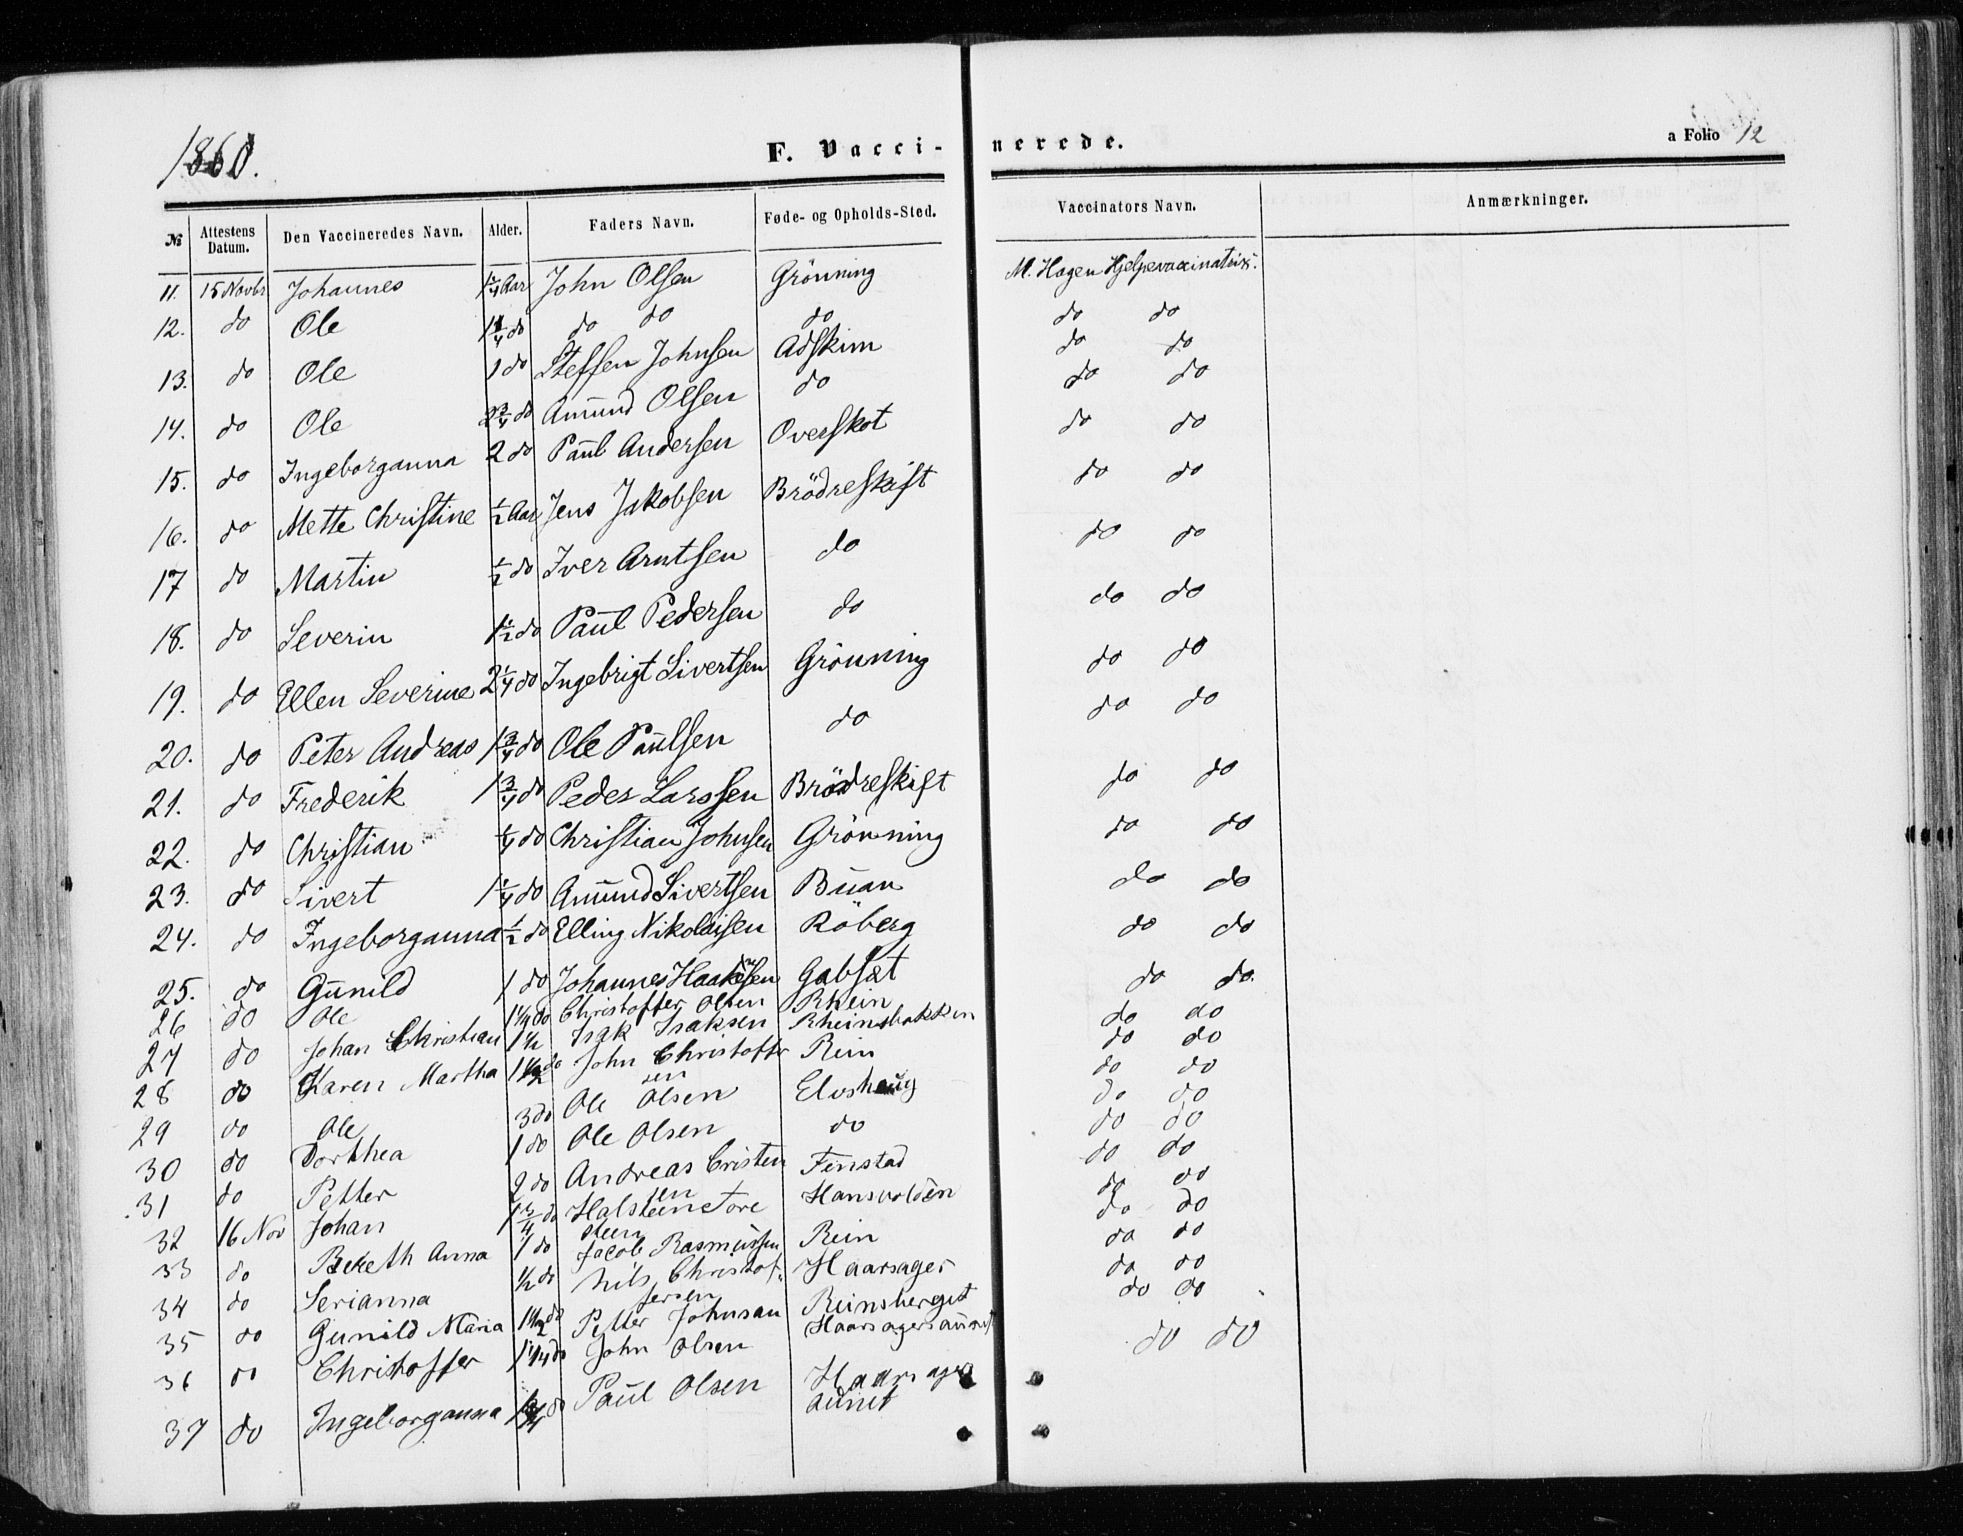 1860.
F. Vacci-nerede.
a Folio 12
№ Attestens Datum. Den Vaccineredes Navn. Alder. Faders Navn. Føde- og Opholds-Sted. Vaccinators Navn. Anmærkninger.
11. 15 Novbr Johannes 1¼ Aar John Olsen Grönning M. Hagen Hjelpevaccinatör.
12. do Ole 1¼ do do do do do do
13. do Ole 1 do Steffen Johnsen Adskim do do
14. do Ole 2¾ do Amund Olsen do do do
15. do Ingeborganna 2 do Paul Andersen Overskot do do
16. do Mette Christine ½ Aar Jens Jakobsen Brödreskift do do
17 do Martin ½ do Iver Arntsen do do do
18. do Severin 1½ do Paul Pedersen do do do
19. do Ellen Severine 2¼ do Ingebrigt Sivertsen Grönning do do
20. do Peter Andreas 1¾ do Ole Paulsen do do do
21. do Frederik 1¾ do Peder Larssen Brödreskift do do
22. do Christian ¼ do Christian Johnsen Grönning do do
23. do Sivert 1¼ do Amund Sivertsen Buan do do
24. do Ingeborganna ½ do Elling Nikolaisen Röberg do do
25. do Gunild 1 do Johannes Gabsæt do do.
26 do Ole 1¼ do Christoffer Olsen Rhein do do
27 do Johan Christian 1½ Isak Isaksen Rheinsbakken do do
28 do Karen Martha 1½ do John Christoffersen Rein do do
29 do Ole 3 do Ole Olsen Elvshaug do do
30 do Dorthea 1 do Ole Olsen do do do
31 do Petter 2 do Andreas Cristensen Finstad do do
32 16 Nov Johan 1¾ do Halsteen Tore steen Hansvolden do do
33 do Bereth Anna 1 do Jacob Rasmussen Rein do do
34 do Serianna ½ do Nils Christoffersen Haarsager do do
35 do Gunild Maria 1½ do Petter Johnsan Reinsberget do do
36 do Christoffer 1¼ do John Olsen Haarsagersaunet do do
37 do Ingeborganna do Paul Olsen Haarsager aunet do do